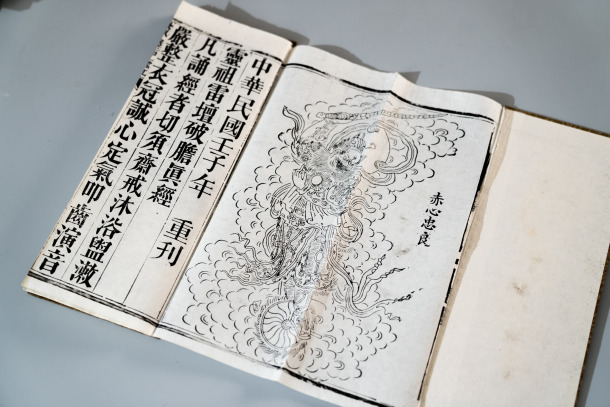 赤心忠良
中華民國壬子年 重刊
靈祖雷壇破膽眞經
凡誦經者切須齋戒沐浴盥漱
嚴整衣冠誠心定氣叩齒演音